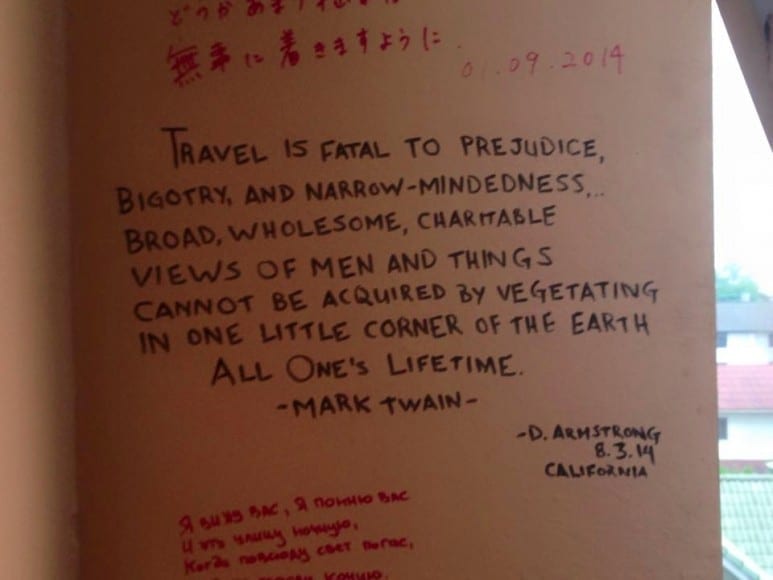 どうかあまり
無事に着きますように.
01.09.2014
TRAVEL IS FATAL TO PREJUDICE,
BIGOTRY, AND NARROW-MINDEDNESS...
BROAD, WHOLESOME, CHARITABLE
VIEWS OF MEN AND THINGS
CANNOT BE ACQUIRED BY VEGETATING
IN ONE LITTLE CORNER OF THE EARTH
ALL ONE'S LIFETIME.
-MARK TWAIN-
-D. ARMSTRONG
8.3.14
CALIFORNIA
Я вижу вас, я помню вас
И эту улицу ночную,
Когда повсюду свет погас,